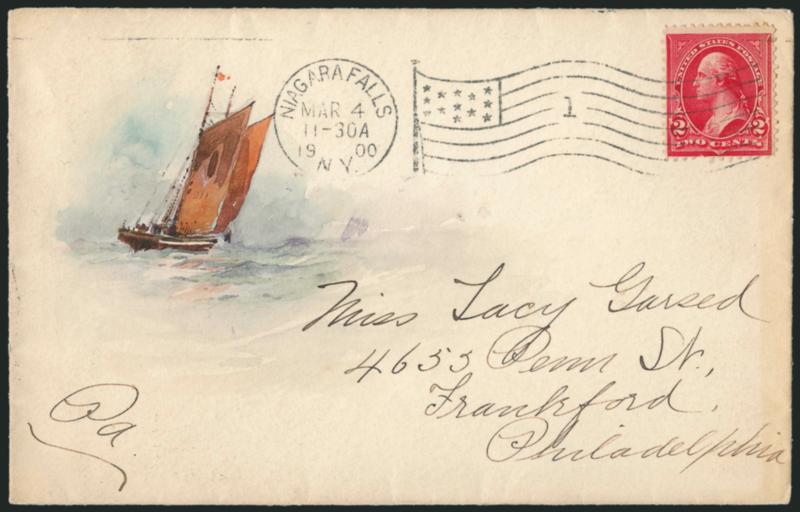 NIAGARA FALLS
MAR 4
11-30A
1900
N.Y.
1
UNITED STATES POSTAGE
2 2
TWO CENTS
Miss Lacy Garsed
4653 Penn St.,
Frankford,
Philadelphia
Pa.